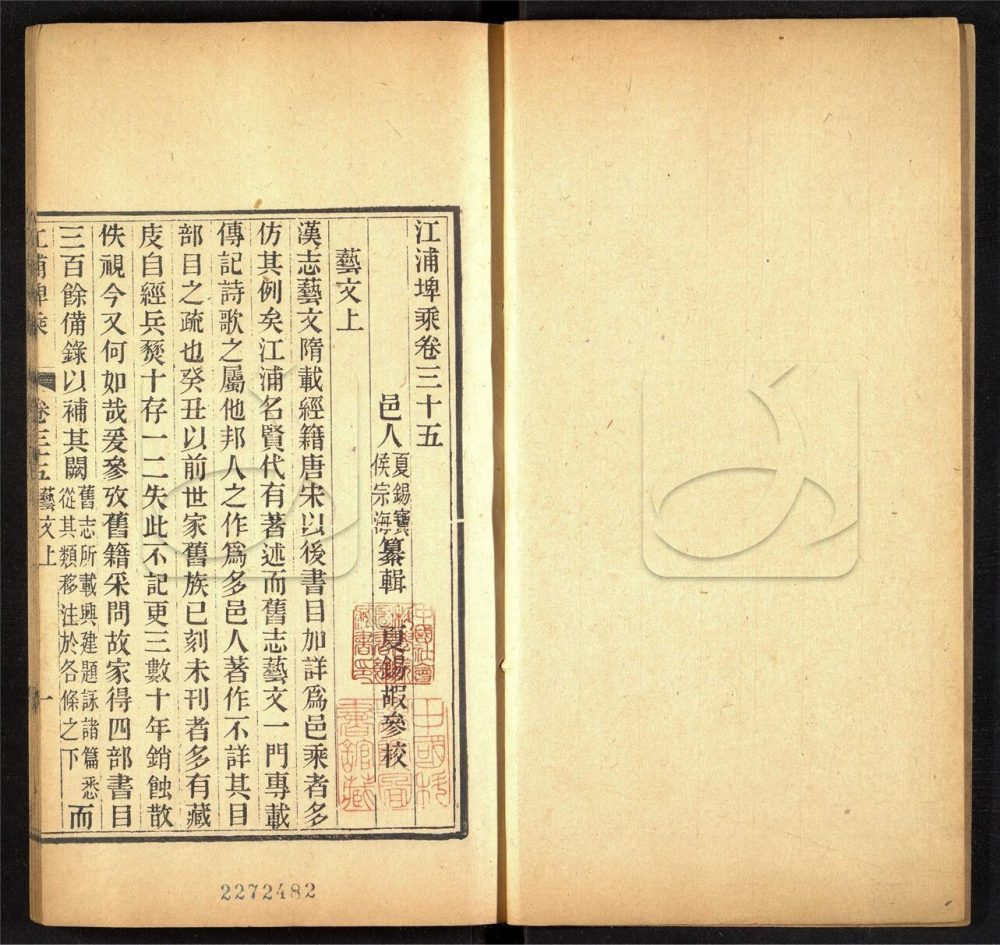 江浦埤乘卷三十五
邑人 夏錫寶 侯宗海 纂輯 夏錫嘏參校
藝文上
漢志藝文隋載經籍唐宋以後書目加詳爲邑乘者多
仿其例矣江浦名賢代有著述而舊志藝文一門專載
傳記詩歌之屬他邦人之作爲多邑人著作不詳其目
部目之疏也癸丑以前世家舊族已刻未刊者多有藏
庋自經兵燹十存一二失此不記更三數十年銷蝕散
佚視今又何如哉爰參攷舊籍采問故家得四部書目
三百餘備錄以補其闕 舊志所載興建題詠諸篇悉 從其類移注於各條之下 而
江浦埤乘 卷三十五 藝文上 一
2272482